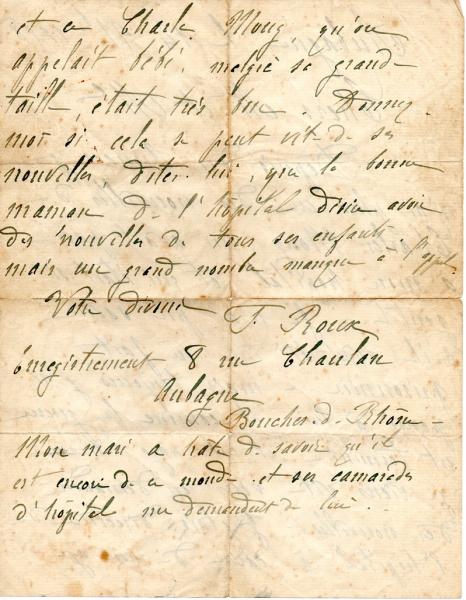 et ce Charle Mouy qu'on
appelait bébé, malgré sa grande
taille, était très bon. Donnez
moi si cela se peut vite de ses
nouvelles, dites-lui, que la bonne
maman de l'hôpital désire avoir
des nouvelles de tous ses enfants
mais un grand nombre manque à l'appel
Votre dévoué T. Roux
Enregistrement 8 rue
Aubagne
Bouches-d-Rhône -
Mon mari a hâte de savoir qu'il
est encore de ce monde et ses camarades
d'hôpital me demandent de lui.